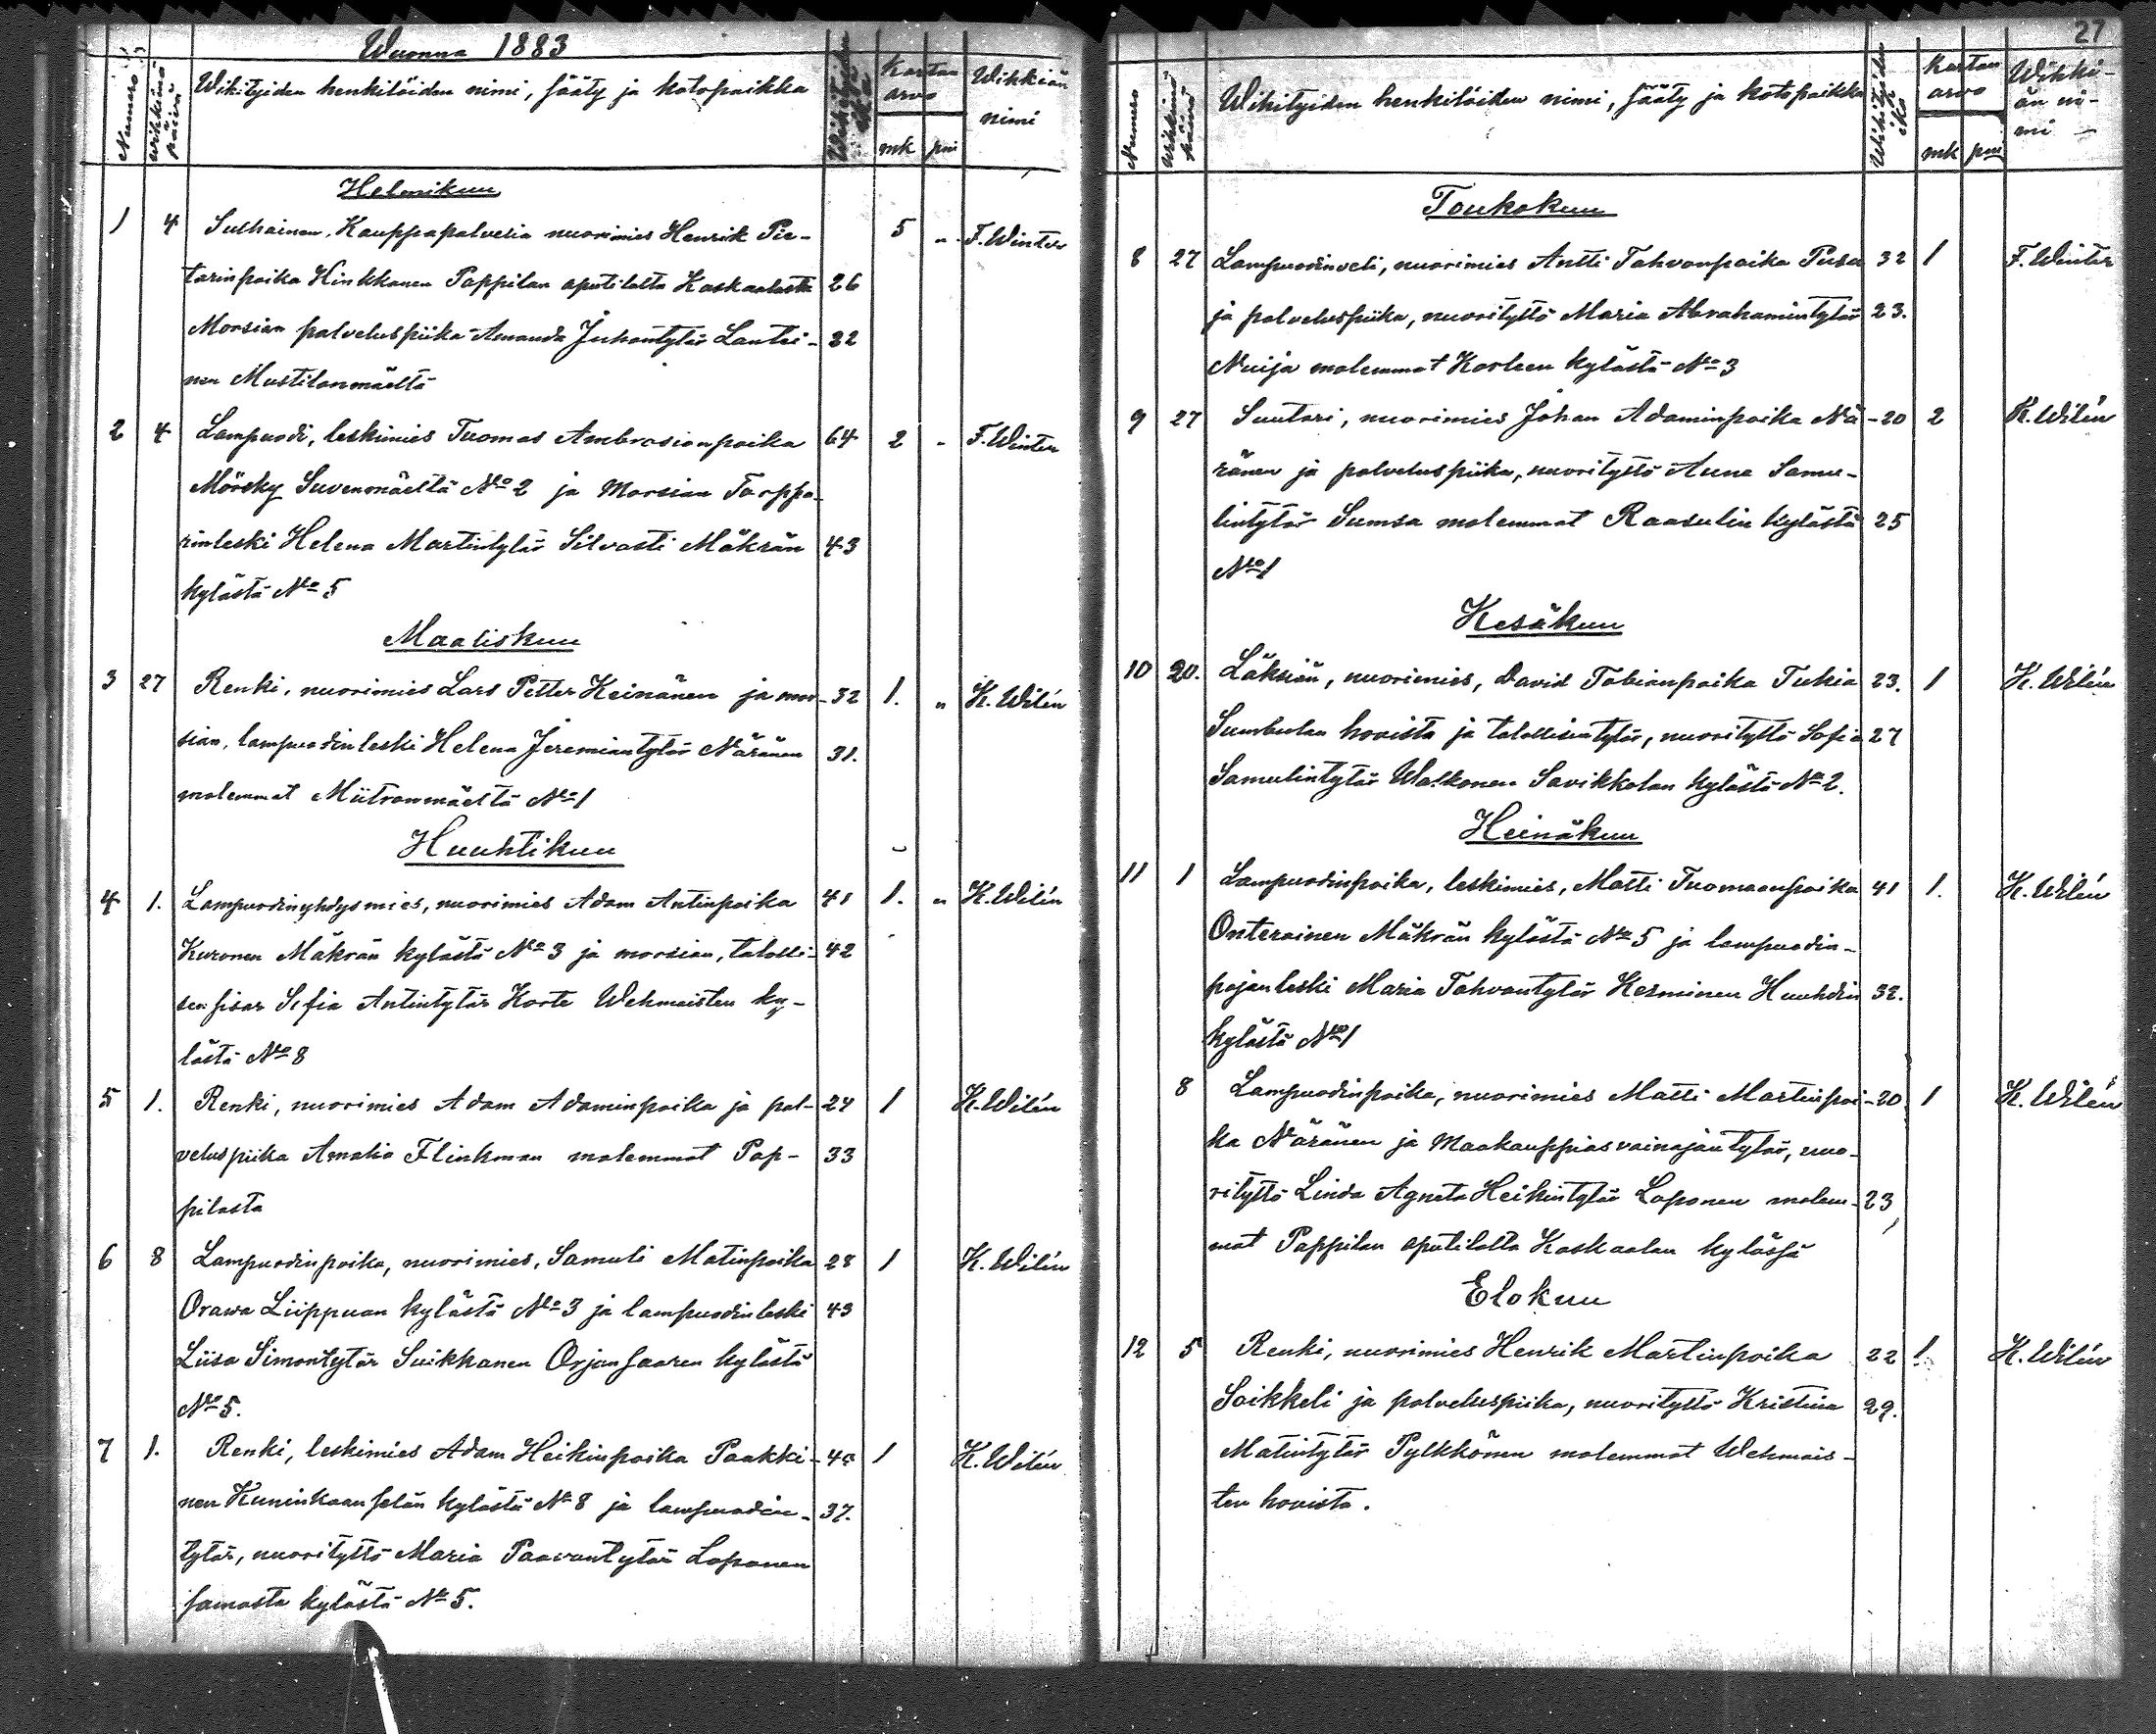 Wuonna 1883
Numero
wihkimä päivä
Wihityiden henkilöiden nimi, sääty ja kotopaikka
Wihityiden ikä
Kartan arvo
mk pni
Wihkiän nimi
Helmikuu
1 4 Sulhainen, Kauppapalvelia nuorimies Henrik Pie- 5 „ F. Winter
tarinpoika Hinkkanen Pappilan aputilalta Kaskaalasta 26
Morsian palveluspiika Amanda Juhontytär Lantei- 22
nen Mustilanmäeltä
2 4 Lampuodi, leskimies Tuomas Ambrosionpoika 64 2 - F. Winter
Mörsky Suvenmäeltä No 2 ja Morsian Torppa-
rinleski Helena Martintytär Silvasti Mäkrän 43
kylästä No 5
Maaliskuu
3 27 Renki, nuorimies Lars Petter Keinänen ja mor- 32 1. „ K. Wilén
sian, lampuodinleski Helena Jeremiantytär Näränen 31.
molemmat Miitronmäeltä No 1
Huuhtikuu
4 1. Lampuodinyhdysmies, nuorimies Adam Antinpoika 41 1. „ K. Wilén
Kuronen Mäkrän kylästä No 3 ja morsian, talolli- 42
sen sisar Sofia Antintytär Korte Wehmaisten ky-
lästä No 8
5 1. Renki, nuorimies Adam Adaminpoika ja pal- 24 1 K. Wilén
veluspiika Amalia Flinkman molemmat Pap- 33
pilasta
6 8 Lampuodinpoika, nuorimies, Samuli Matinpoika 28 1 K. Wilén
Orawa Liippuan kylästä No 3 ja lampuodinleski 43
Liisa Simontytär Suikkanen Orjansaaren kylästä
No 5.
7 1. Renki, leskimies Adam Heikinpoika Paakki- 40 1 K. Wilén
nen Kuninkaanselän kylästä No 8 ja lampuodin- 37.
tytär, nuorityttö Maria Paavontytär Loponen
samasta kylästä No 5.
27
Numero
Wihkimä päivä
Wihityiden henkilöiden nimi, sääty ja kotopaikka
Wihityiden ikä
Kartan arvo
mk pni
Wihki-
än ni-
mi
Toukokuu
8 27 Lampuodinveli, nuorimies Antti Tahvonpoika Pusa 32 1 F. Winter
ja palveluspiika, nuorityttö Maria Abrahamintytär 23.
Nuija molemmat Korleen kylästä No 3
9 27 Suutari, nuorimies Johan Adaminpoika Nä- 20 2 K. Wilén
ränen ja palveluspiika, nuorityttö Anna Samu-
lintytär Sumsa molemmat Raasulin kylästä 25
No 1
Kesäkuu
10 20. Läksiän, nuorimies, David Tobianpoika Tukia 23. 1 K. Wilén
Sumbulan hovista ja talollisentytär, nuorityttö Sofia 27
Samulintytär Walkonen Savikkolan kylästä No 2.
Heinäkuu
11 1 Lampuodinpoika, leskimies, Matti Tuomaanpoika 41 1. K. Wilén
Onterainen Mäkrän kylästä No 5 ja lampuodin-
pojanleski Maria Tahvontytär Herminen Huuhdin 32.
kylästä No 1
8 Lampuodinpoika, nuorimies Matti Martinpoi- 20 1 K. Wilén
ka Näränen ja Maakauppiasvainajantytär, nuo-
rityttö Linda Agneta Heikintytär Loponen molem- 23
mat Pappilan aputilalta Kaskaalan kylässä
Elokuu
12 5 Renki, nuorimies Henrik Martinpoika 22 1. K. Wilén
Soikkeli ja palveluspiika, nuorityttö Kristina 29.
Matintytär Pylkkönen molemmat Wehmais-
ten hovista.